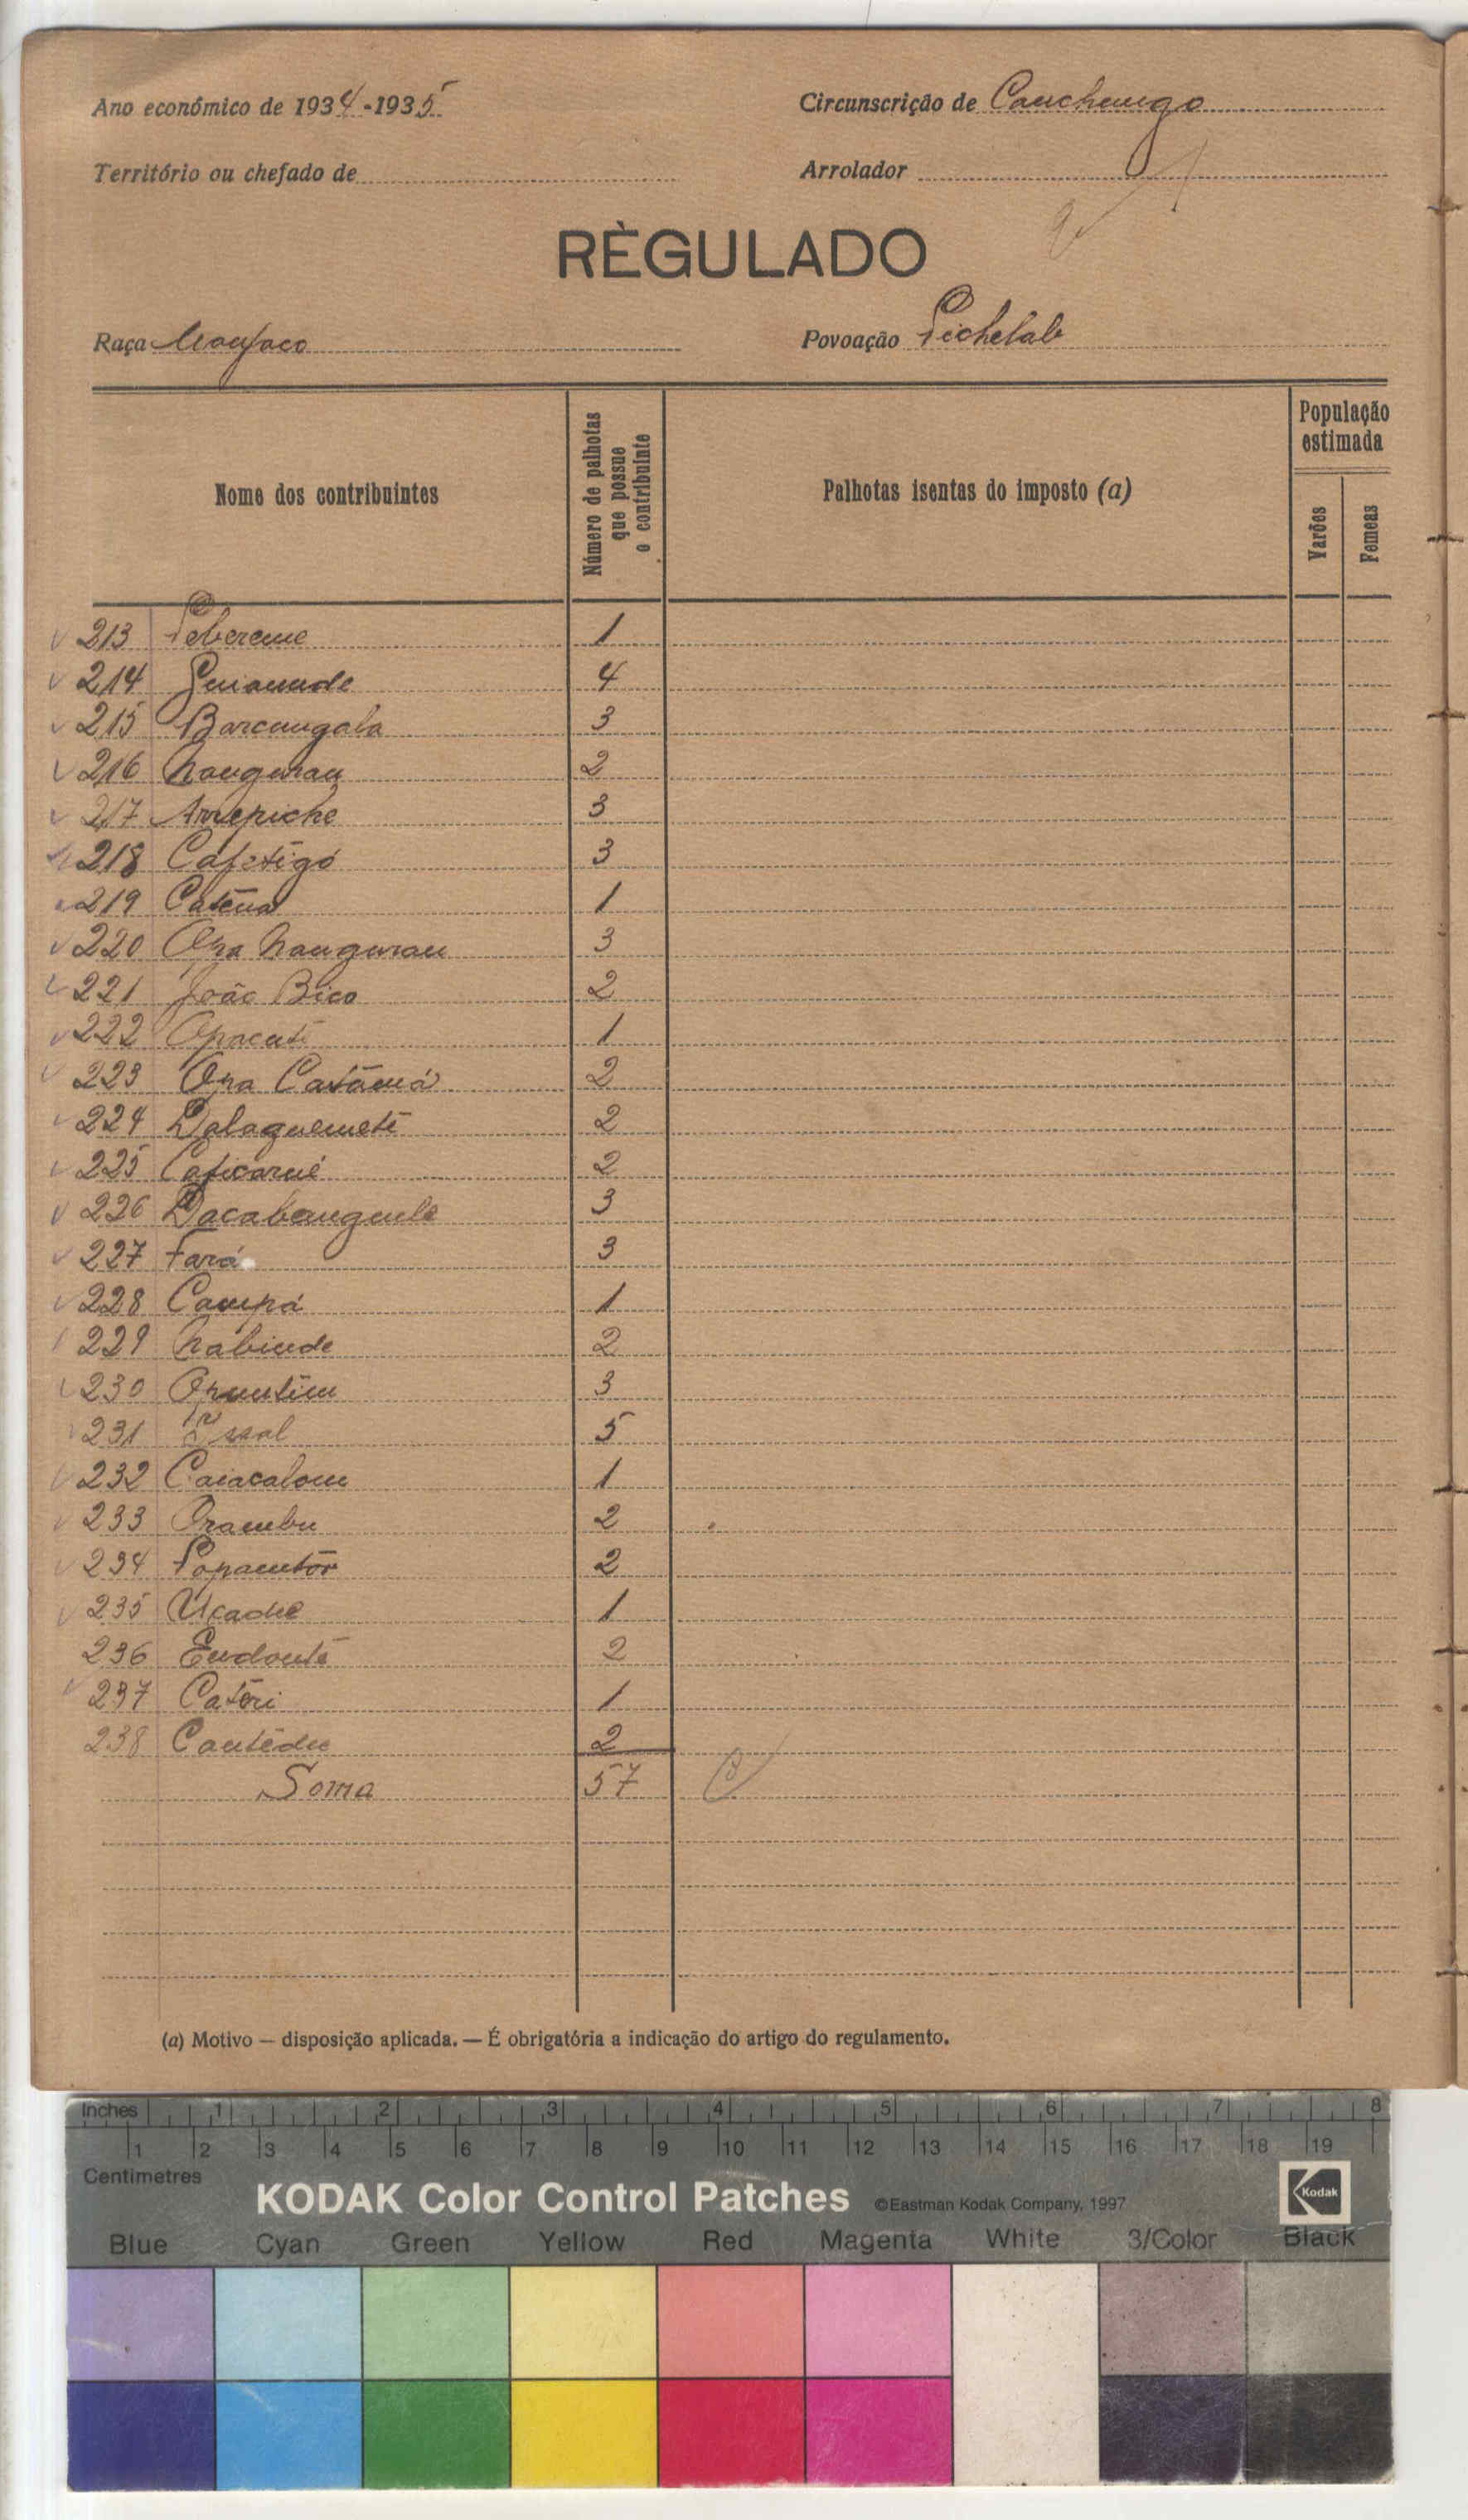 Ano económico de 1934-1935
Circunscrição de Canchungo
Território ou chefado de
Arrolador
RÈGULADO
Raça Manjaco
Povoação Pichelab
Nome dos contribuintes
Número de palhotas que possue o contribuinte
Palhotas isentas do imposto (a)
População estimada
Varões
Femeas
213 Pebereme 1
214 4
215 Barcangala 3
216 Nangurau 2
217 Arrepiche 3
218 Cafetigó 3
219 Catêna 1
220 Nangurau 3
221 João Bico 2
222 1
223 2
224 Dalaquemeté 2
225 2
226 Dacabanguele 3
227 Fará 3
228 Campá 1
229 Nabinde 2
230 3
231 5
232 Caiacalom 1
233 Orambu 2
234 2
235 Ucadic 1
236 2
237 Catôri 1
238 Cantêdu 2
Soma 57
(a) Motivo — disposição aplicada. — É obrigatória a indicação do artigo do regulamento.
Inches 1 2 3 4 5 6 7 8
1 2 3 4 5 6 7 8 9 10 11 12 13 14 15 16 17 18 19
Centimetres
KODAK Color Control Patches ©Eastman Kodak Company, 1997 Kodak
Blue Cyan Green Yellow Red Magenta White 3/Color Black